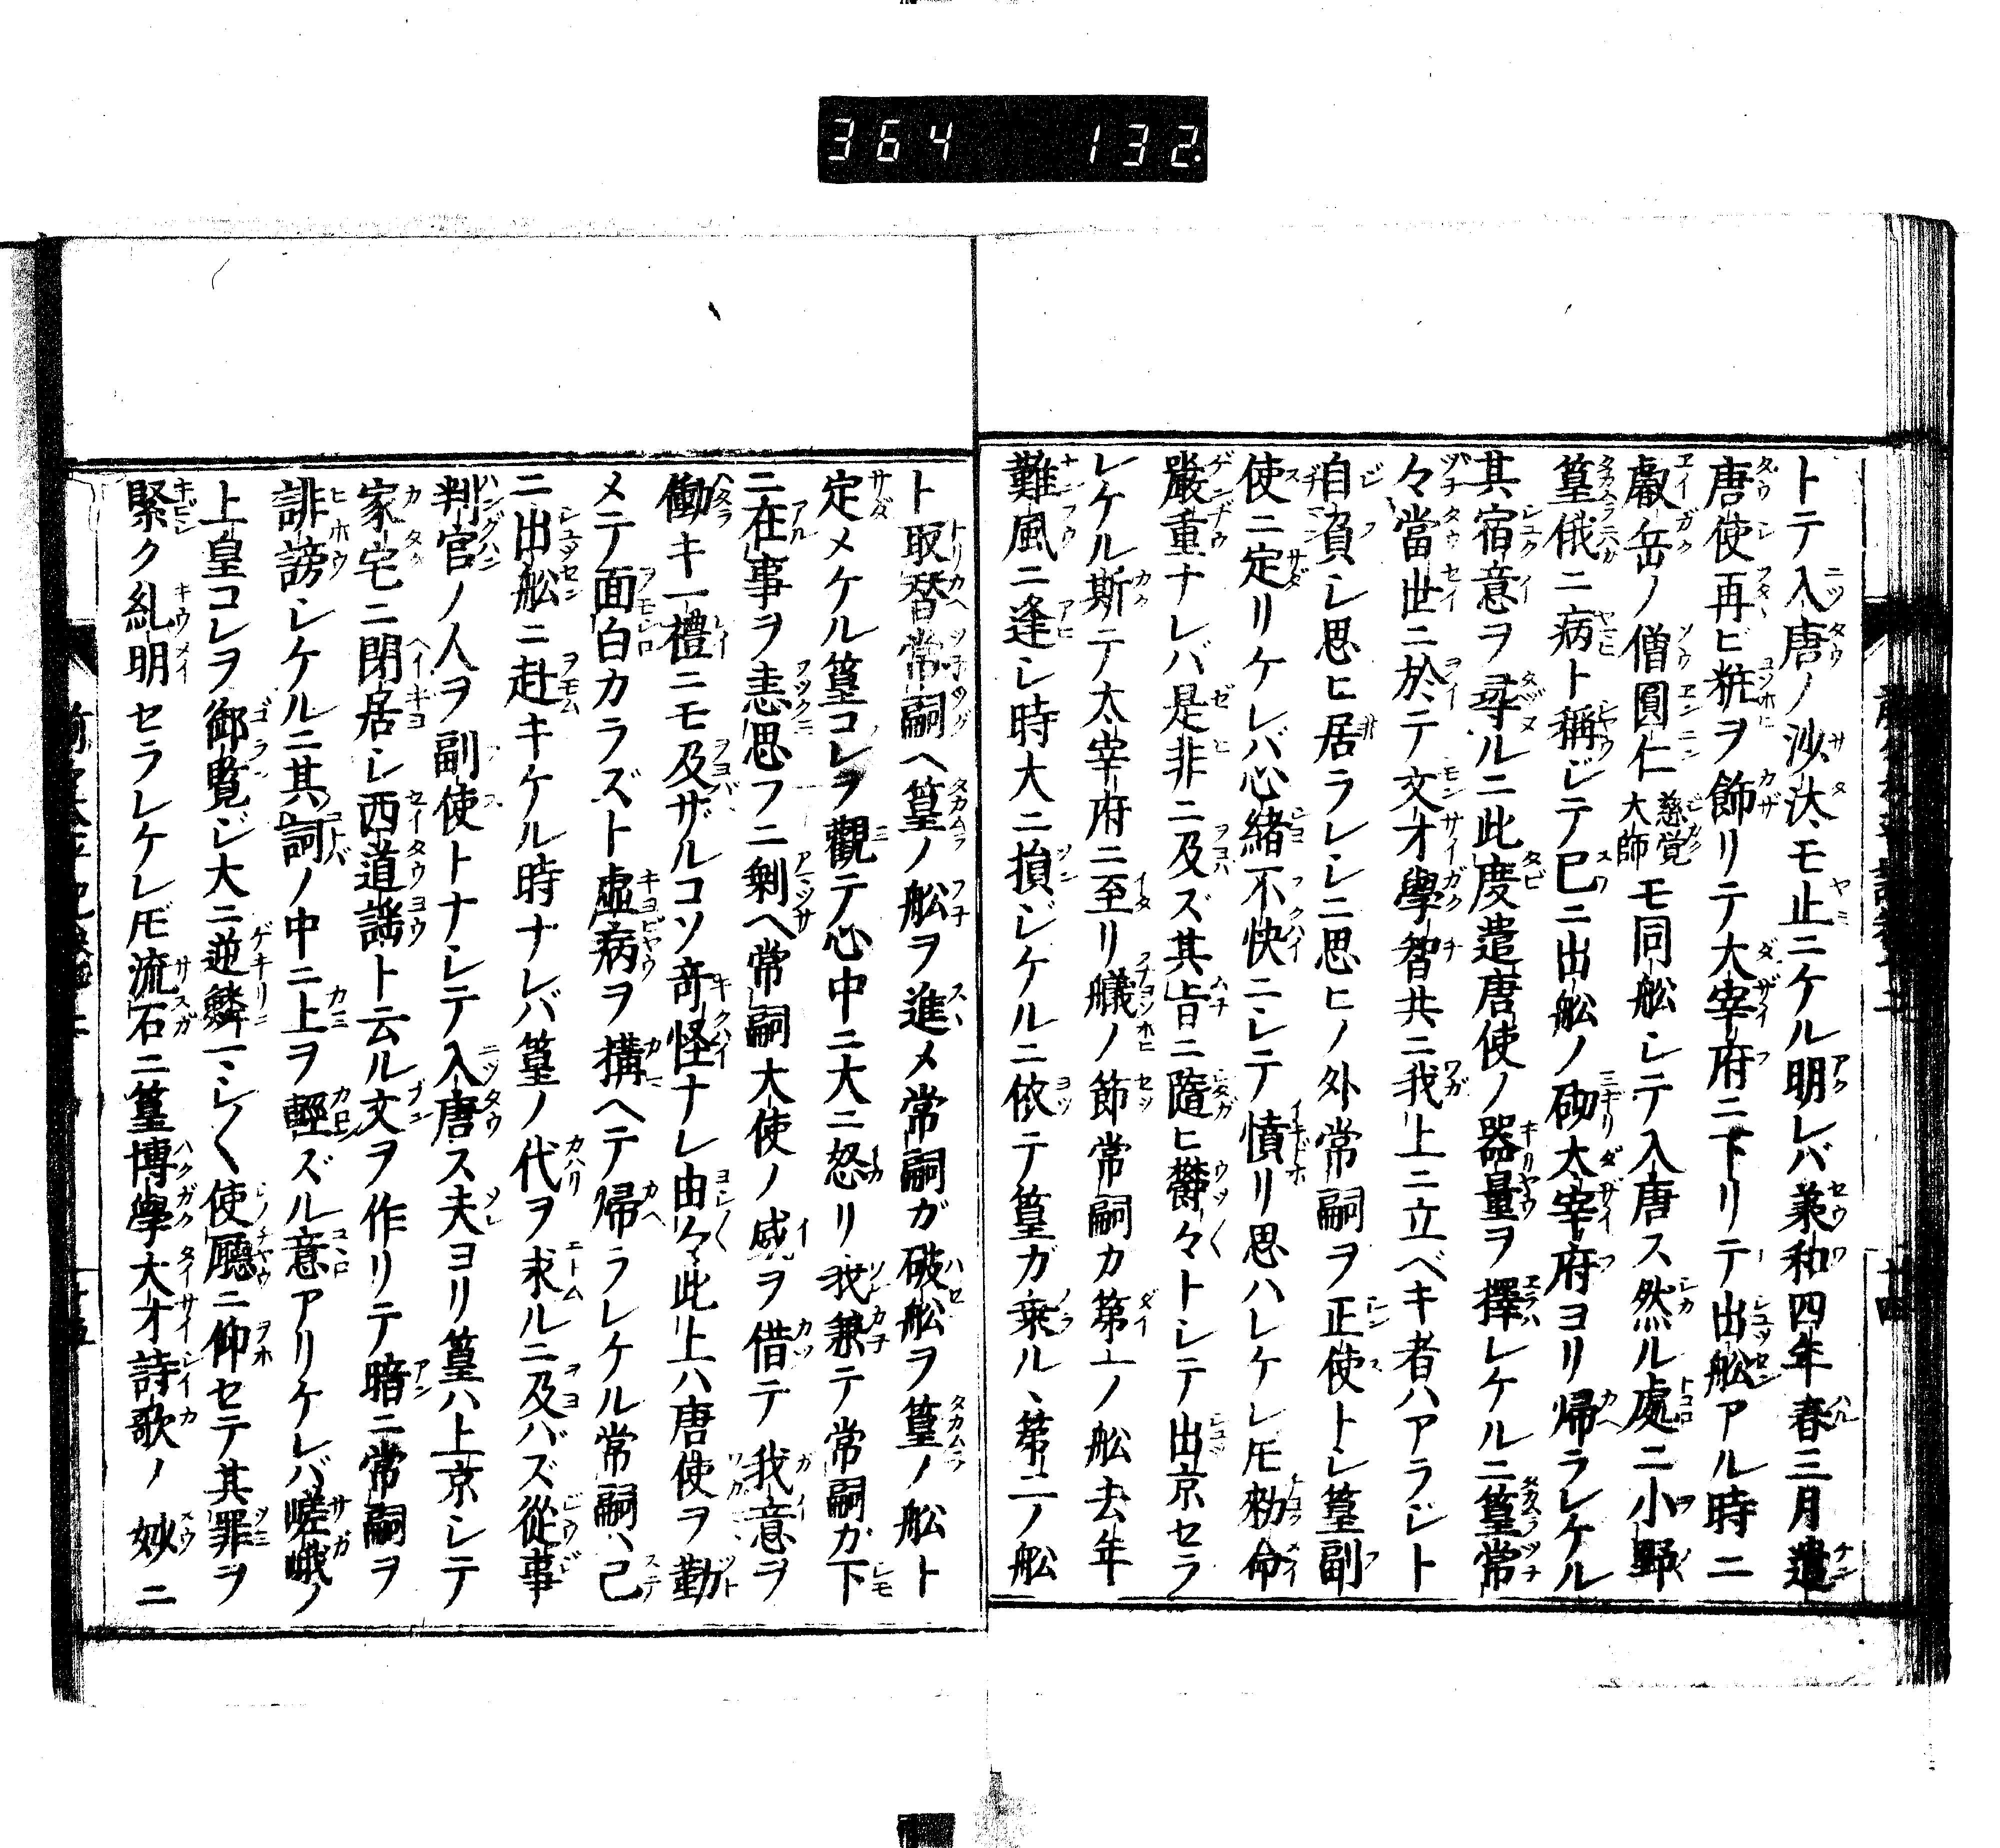 364 132
トテ入唐ノ沙汰モ止ニケル明レバ兼和四年春三月遣
唐使再ビ粧ヲ飾リテ大宰府ニ下リテ出舩アル時ニ
叡岳ノ僧圓仁慈覚大師モ同舩シテ入唐ス然ル處ニ小野
篁俄ニ病ト稱ジテ已ニ出舩ノ砌太宰府ヨリ帰ラレケル
其宿意ヲ尋ルニ此度遣唐使ノ器量ヲ擇レケルニ篁常
々當世ニ於テ文才學智共ニ我上ニ立ベキ者ハアラジト
自負シ思ヒ居ラレシニ思ヒノ外常嗣ヲ正使トシ篁副
使ニ定リケレバ心緒不快ニシテ憤リ思ハレケレ𪜈勑命
嚴重ナレバ是非ニ及ズ其旨ニ隨ヒ欝々トシテ出京セラ
レケル斯テ太宰府ニ至リ艤ノ節常嗣カ第一ノ舩去年
難風ニ逢シ時大ニ損ジケルニ依テ篁ガ乗ル、第二ノ舩
ト取替常嗣ヘ篁ノ舩ヲ進メ常嗣ガ破舩ヲ篁ノ舩ト
定メケル篁コレヲ觀テ心中ニ大ニ怒リ我兼テ常嗣ガ下
ニ在事ヲ恚思フニ剰ヘ常嗣大使ノ威ヲ借テ我意ヲ
働キ一禮ニモ及ザルコソ竒怪ナレ由々此上ハ唐使ヲ勤
メテ面白カラズト虚病ヲ搆ヘテ帰ラレケル常嗣ハ已
ニ出舩ニ赴キケル時ナレバ篁ノ代ヲ求ルニ及バズ從事
判官ノ人ヲ副使トナシテ入唐ス夫ヨリ篁ハ上京シテ
家宅ニ閉居シ西道謡ト云ル文ヲ作リテ暗ニ常嗣ヲ
誹謗シケルニ其詞ノ中ニ上ヲ輕ズル意アリケレバ嵯峨ノ
上皇コレヲ御覧ジ大ニ逆鱗マシ〳〵使廳ニ仰セテ其罪ヲ
緊ク糺明セラレケレ𪜈流石ニ篁博學大才詩歌ノ妙ニ